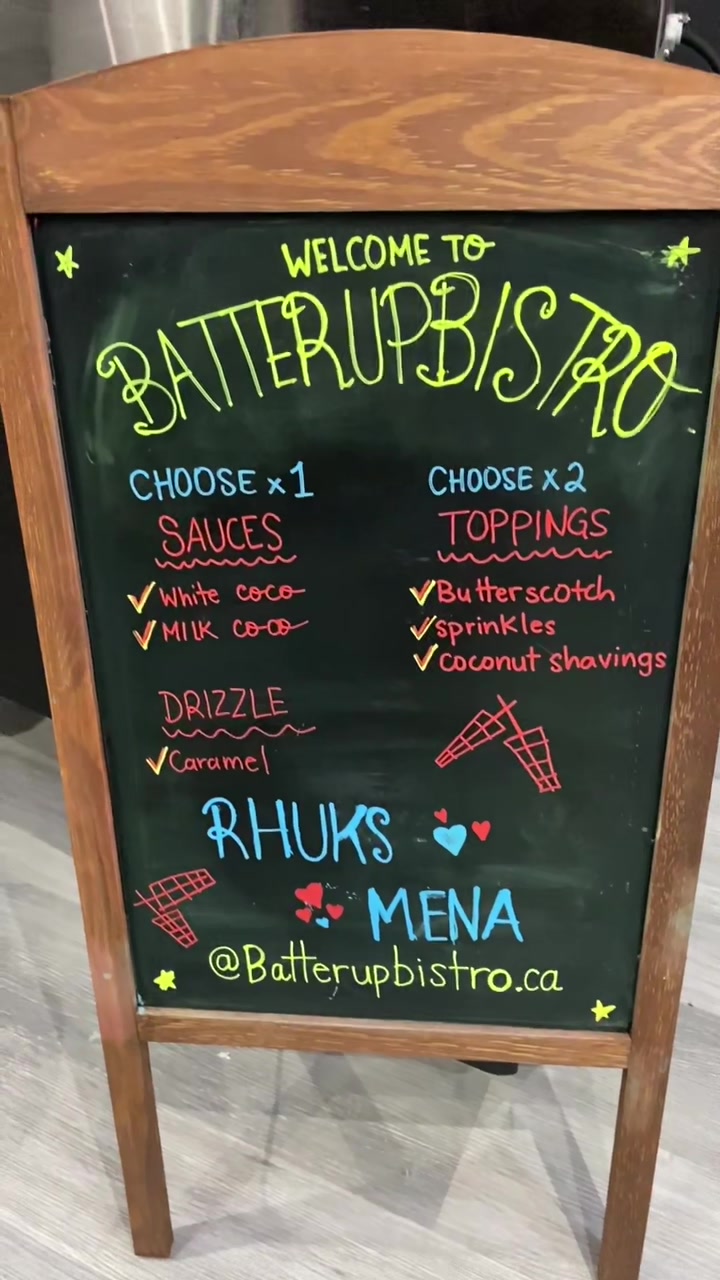 WELCOME TO
BATTERUPBISTRO
CHOOSE x1
SAUCES
White coco
MILK coco
DRIZZLE
Caramel
CHOOSE x2
TOPPINGS
Butterscotch
sprinkles
coconut shavings
RHUKS
MENA
@Batterupbistro.ca